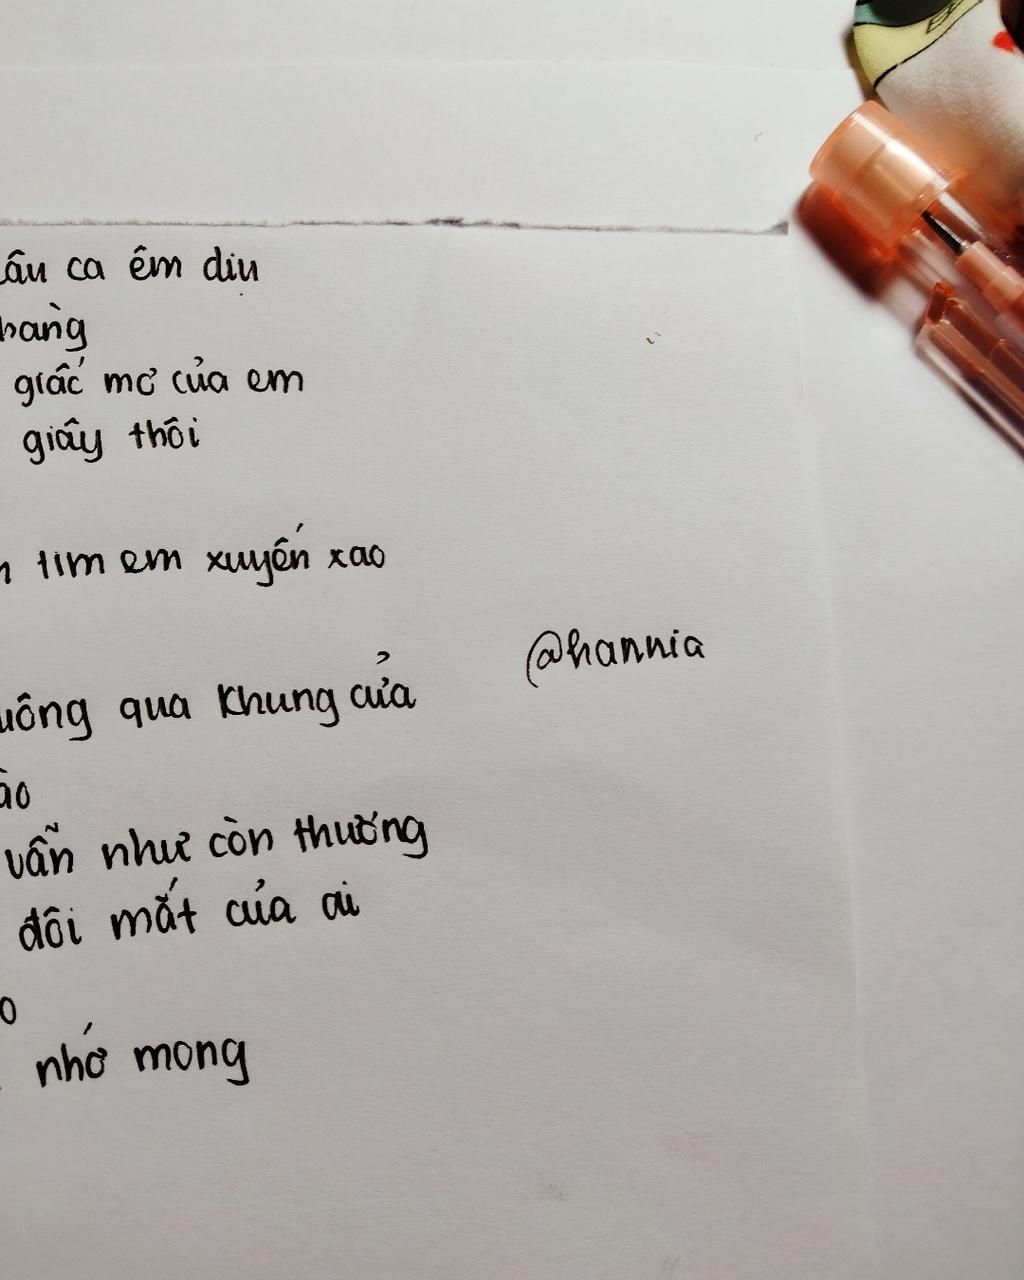 câu ca êm dịu
giấc mơ của em
giây thôi
tim em xuyến xao
@hannia
qua khung cửa
vẫn như còn thương
đôi mắt của ai
nhớ mong